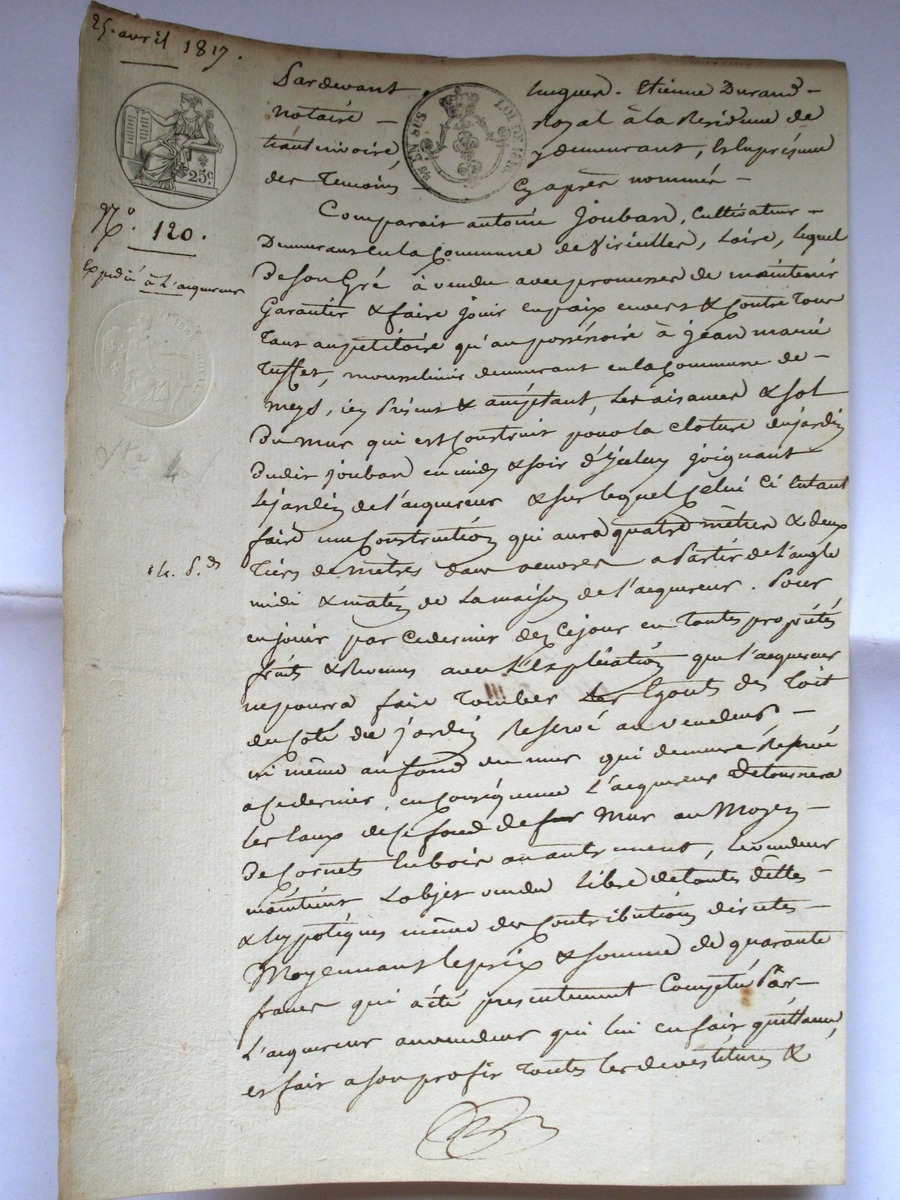 25. avril 1817.
Pardevant hugues. Etienne Durand
notaire royal à la Residence de
y demeurant, & en présence
des Temoins Cy après nommés
25c.
EN SUS
LOI DE 1816
N.° 120.
Expedié à L'acquereur
Comparait antoine Jouban, Cultivateur
Demeurant en la Commune de Viricelles, Loire, lequel
De son Gré à vendu avec promesse de maintenir
Garantir & faire jouir en paix envers & contre tous
Tant au petitoire qu'au possessoire à jean marie
Tuffet, mousselinier demeurant en la Commune de
meys, icy Présent & acceptant, Les aisances & sol
Du mur qui est Construit pour la cloture du jardin
Dudit Jouban en midy & soir d'Icelui joignant
Le jardin de l'acquereur & sur lequel Celui Ci entend
faire une Construction qui aura quatre mètres & deux
Tiers de mètres dans œuvre a Partir de l'angle
midi & matin de La maison de l'acquereur. Pour
en jouir par Ce dernier dez Ce jour en Toutes propriétés
fruits & Revenus avec L'Explication que l'acquereur
ne pourra faire Tomber Les Egouts des Toit
du Coté du jardin Reservé au vendeur,
ni même au fond du mur qui demeure Reservé
a Ce dernier, en Conséquence L'acquereur Detournera
Les Eaux de Ce fond de mur au Moyen
De Cornets En bois ou autrement, Le vendeur
maintient L'objet vendu Libre de toutes dettes
& hyppotéques même des Contributions directes
Moyennant le prix & somme de quarante
francs qui a été presentement Compté Par
L'acquereur au vendeur qui lui en fait quittance,
et fait a son profit Toutes les devestitures &